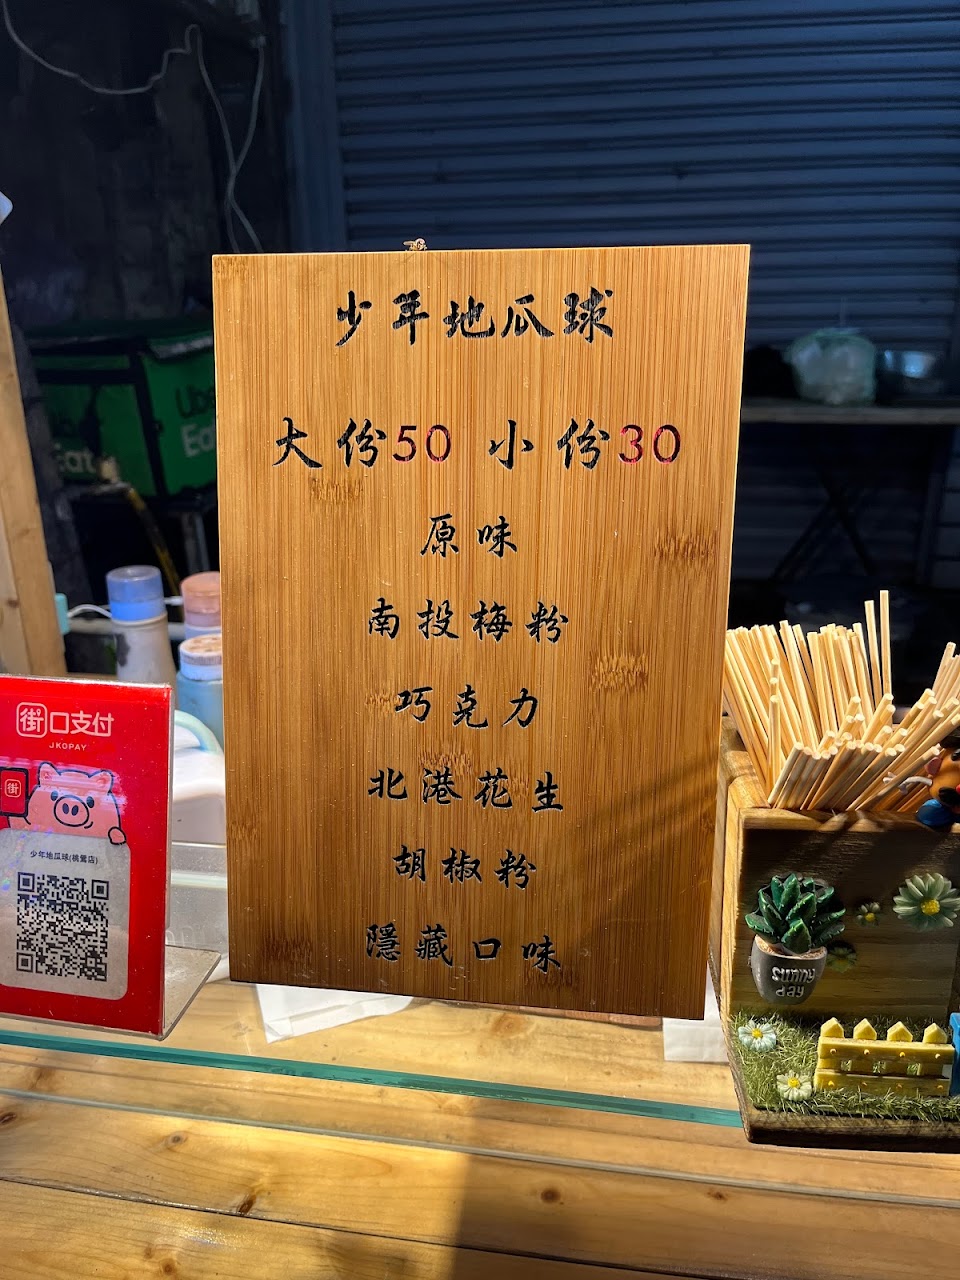 少年地瓜球
大份50 小份30
原味
南投梅粉
巧克力
北港花生
胡椒粉
隱藏口味
街口支付
JKOPAY
街
少年地瓜球(桃鶯店)
Uber
Eat
Eat
sunny
day